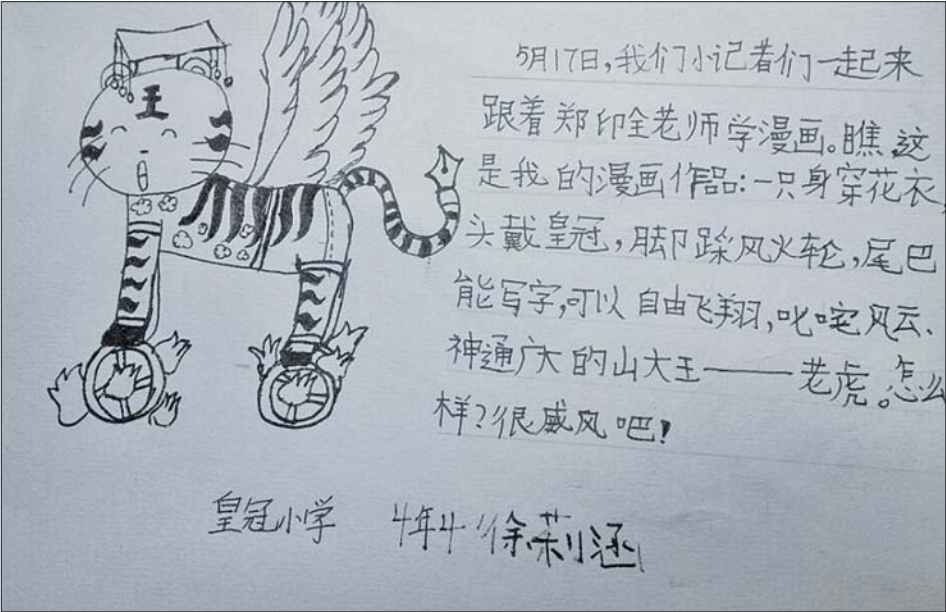 王
5月17日,我们小记者们一起来
跟着郑印全老师学漫画。瞧,这
是我的漫画作品:一只身穿花衣,
头戴皇冠,脚踩风火轮,尾巴
能写字,可以自由飞翔,叱咤风云、
神通广大的山大王——老虎。怎么
样?很威风吧!
皇冠小学 4年4 徐莉涵